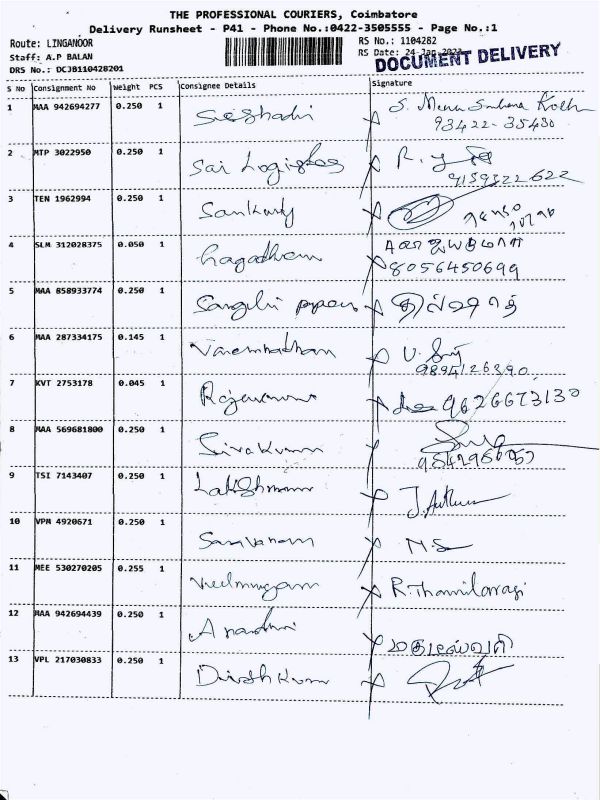 THE PROFESSIONAL COURIERS, Coimbatore
Delivery Runsheet - P41 - Phone No.:0422-3505555 - Page No.:1
Route: LINGANOOR
RS No.: 1104282
Staff: A.P BALAN
RS Date: 24 Jan
DOCUMENT DELIVERY
DRS No.: DCJB110428201
S No Consignment No Weight PCS Consignee Details Signature
1 MAA 942694277 0.250 1 Seshadri S. Meena
93422-35430
2 MTP 3022950 0.250 1 Sai Logistics R.
9159322622
3 TEN 1962994 0.250 1
4 SLM 312028375 0.050 1
8056450699
5 MAA 858933774 0.250 1
6 MAA 287334175 0.145 1 V.
9894126390
7 KVT 2753178 0.045 1 9626673130
8 MAA 569681800 0.250 1 Sivakumar
9 TSI 7143407 0.250 1 Lakshmanan J.
10 VPM 4920671 0.250 1 Saravanan M.S
11 MEE 530270205 0.255 1 Velmurugan R. Thamilarasi
12 MAA 942694439 0.250 1 மகேஸ்வரி
13 VPL 217030833 0.250 1